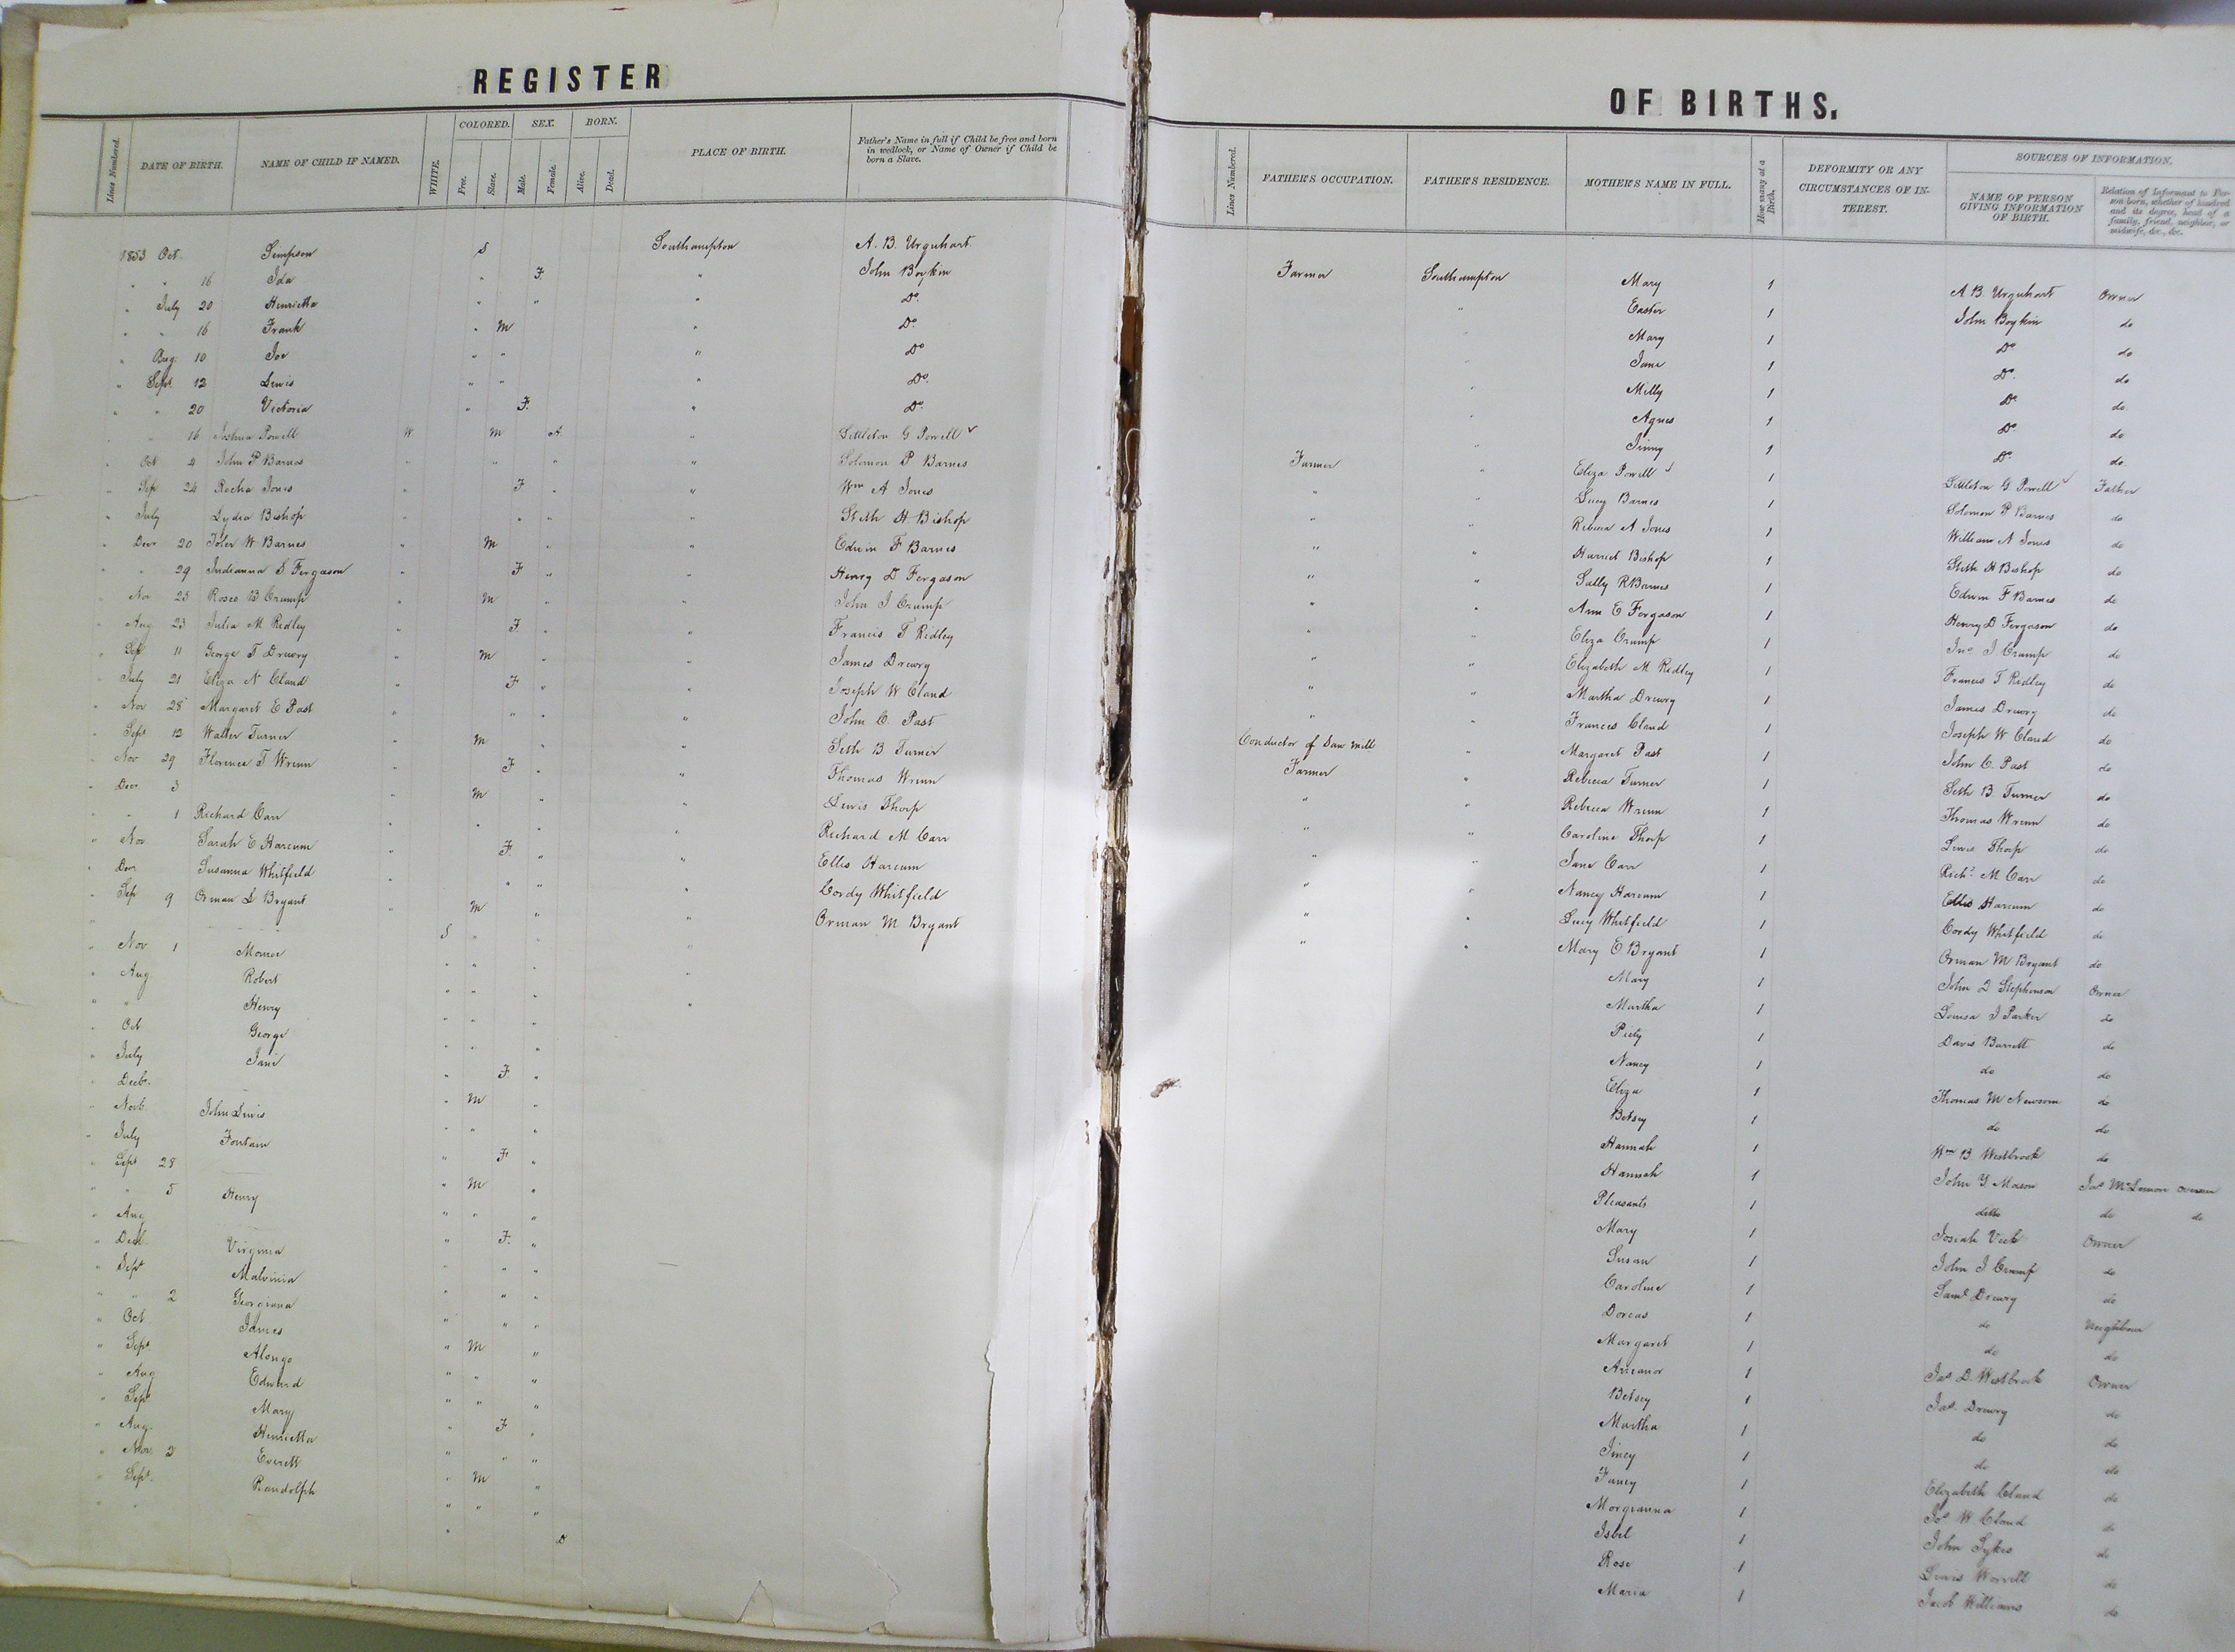 REGISTER
Lines Numbered.
DATE OF BIRTH.
NAME OF CHILD IF NAMED.
WHITE.
COLORED.
Free.
Slave.
SEX.
Male.
Female.
BORN.
Alive.
Dead.
PLACE OF BIRTH.
Father's Name in full if Child be free and born
in wedlock, or Name of Owner if Child be
born a Slave.
1853 Oct. Simpson S Southampton A. B. Urquhart
" " 16 Ida " F " John Boykin
" July 20 Henrietta " " " Do.
" " 16 Frank " M " Do.
" Aug. 10 Joe " " " Do
" Sept 12 Lewis " " " Do.
" " 20 Victoria " F. " Do.
" " 16 Joshua Powell W M A " Littleton G Powell ✓
" Oct 4 John P Barnes " " " " Solomon P Barnes
" Sep 24 Recha Jones " F " " Wm A Jones
" July Lydia Bishop " " " " Stith H Bishop
" Decr 20 Toler W Barnes " M " " Edwin F Barnes
" " 29 Indianna S. Fergason " F " " Henry D Fergason
" Nov 23 Rosco B Crump " M " " John J Crump
" Aug 23 Julia M Ridley " F " " Francis T Ridley
" Sep 11 George T Drewry " M " " James Drewry
" July 21 Eliza N Claud " F " " Joseph W Claud
" Nov 28 Margaret E Past " " " " John C. Past
" Sept 12 Walter Turner " M " " Seth B Turner
" Nov 29 Florence T Wrenn " F " " Thomas Wrenn
" Decr 3 " M " " Lewis Thorp
" " 1 Richard Carr " " " " Richard M Carr
" Nov Sarah E Harcum " F. " " Ellis Harcum
" Decr Susanna Whitfield " " " " Cordy Whitfield
" Sep 9 Orman L Bryant " M " " Orman M Bryant
" S " " "
" Nov 1 Monroe " " " "
" Aug. Robert " " " "
" " Henry " " "
" Oct George " " "
" July Jane " F "
" Decbr. " M "
" Novb. John Lewis " " "
" July Fontain " F "
" Sept 28 " M "
" " 5 Henry " " "
" Aug " F. "
" Decb Virginia " " "
" Sept Malvinia " " "
" " 2 Georgiana " " "
" Oct James " M "
" Sept Alonzo " " "
" Aug Edward " " "
" Sept Mary " F "
" Aug. Henrietta " " "
" Nov 2 Everett " M "
" Sept. Randolph " " "
" " " D
OF BIRTHS.
Lines Numbered.
FATHER'S OCCUPATION.
FATHER'S RESIDENCE.
MOTHER'S NAME IN FULL.
How many at a
Birth.
DEFORMITY OR ANY
CIRCUMSTANCES OF IN-
TEREST.
SOURCES OF INFORMATION.
NAME OF PERSON
GIVING INFORMATION
OF BIRTH.
Relation of Informant to Per-
son born, whether of kindred
and its degree, head of a
family, friend, neighbor, or
midwife, &c., &c.
Farmer Southampton Mary 1 A. B. Urquhart Owner
" Easter 1 John Boykin do
" Mary 1 Do do
" Jane 1 Do. do
" Milly 1 Do do.
" Agnes 1 Do do
" Jinny 1 Do. do
Farmer " Eliza Powell ✓ 1 Littleton G. Powell ✓ Father
" " Lucy Barnes 1 Solomon P Barnes do
" " Rebecca A Jones 1 William A Jones do
" " Harriet Bishop 1 Stith H Bishop do
" " Sally R Barnes 1 Edwin F Barnes do
" " Ann E Fergason 1 Henry D Fergason do
" " Eliza Crump 1 Jno. J Crump do
" " Elizabeth M Ridley 1 Francis T Ridley do
" " Martha Drewry 1 James Drewry do
" " Frances Claud 1 Joseph W Claud do
Conductor of Saw Mill " Margaret Past 1 John C. Past do
Farmer " Rebecca Turner 1 Seth B Turner do
" " Rebecca Wrenn 1 Thomas Wrenn do
" " Caroline Thorp 1 Lewis Thorp do
" " Jane Carr 1 Richd M Carr do
" " Nancy Harcum 1 Ellis Harcum do
" " Lucy Whitfield 1 Cordy Whitfield do
" " Mary E Bryant 1 Orman M Bryant do
Mary 1 John Q Stephenson Owner
Martha 1 Louisa J Parker do
1 Davis Barrett do
Nancy 1 do do
Eliza 1 Thomas M Newsom do
Betsey 1 do do
Hannah 1 Wm B Westbrook do
Hannah 1 John Y Mason Jas McLemore overseer
Pleasants 1 ditto do do
Mary 1 Josiah Vick Owner
Susan 1 John J Crump do
Caroline 1 Saml Drewry do
Dorcas 1 do Neighbour
Margaret 1 do do
1 Jas D. Westbrook Owner
Betsey 1 Jas. Drewry do
Martha 1 do do
Jincy 1 do do
Fancy 1 Elizabeth Claud do
Morgianna 1 Jos W Claud do
Isbel 1 John Sykes do
Rose 1 Lewis Worrell do
Maria 1 Jacob Williams do